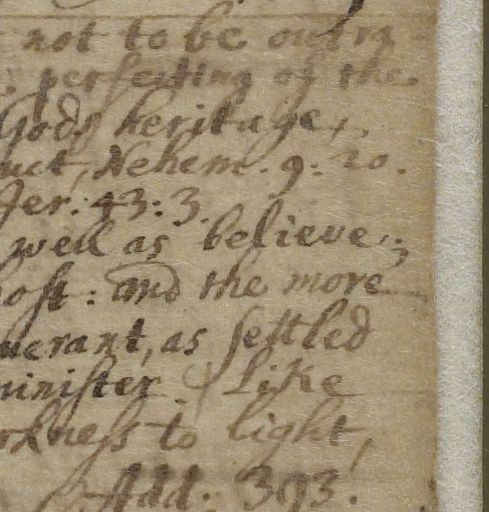 not to be
perfecting of the
Gods heritage,
Nehem. 9: 20.
Jer: 43: 3.
well as believe;
host: and the more
nerant, as settled
minister. Like
rkness to light,
Add. 393.